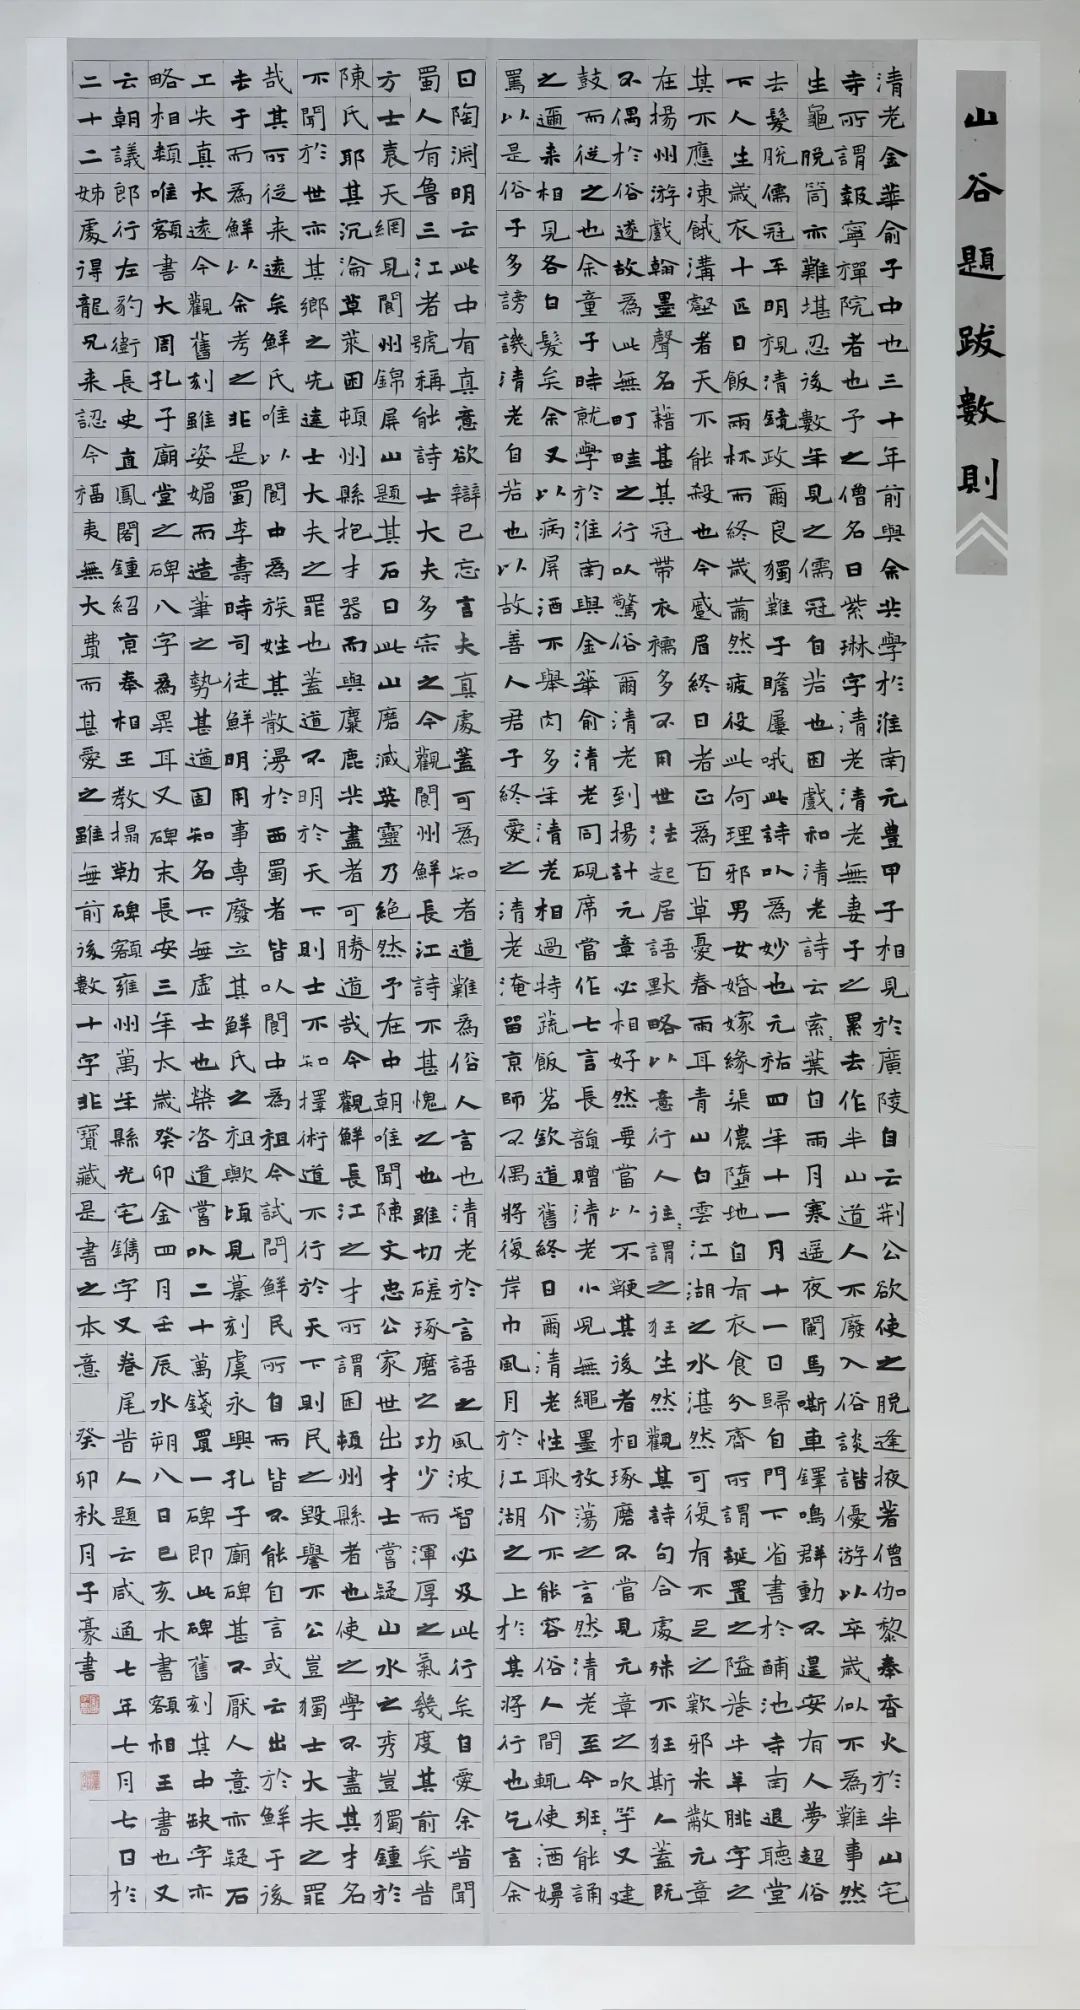 山谷題跋數則
清老金華俞子中也三十年前與余共學於淮南元豊甲子相見於廣陵自云荆公欲使之脱逢掖著僧伽黎奉香火於半山宅
寺所謂報寧禪院者也予之僧名曰紫琳字清老清老無妻子之累去作半山道人不廢入俗談諧優游以卒歲似不為難事然
生龜脱筒亦難堪忍後數年見之儒冠自若也因戲和清老詩云索〻葉自雨月寒遥夜闌馬嘶車鐸鳴群動不遑安有人夢超俗
去髮脱儒冠平明視清鏡政爾良獨難子瞻屢哦此詩以為妙也元祐四年十一月十一日歸自門下省書於酺池寺南退聽堂
下人生歲衣十匹日飯兩杯而終歲薾然疲役此何理邪男女婚嫁緣渠儂墮地自有衣食分齊所謂誕置之隘巷牛羊腓字之
其不應凍餓溝壑者天不能殺也今蹙眉終日者正為百草憂春雨耳青山白雲江湖之水湛然可復有不足之歎邪米黻元章
在揚州游戲翰墨聲名藉甚其冠帶衣襦多不用世法起居語默略以意行人往〻謂之狂生然觀其詩句合處殊不狂斯人蓋既
不偶於俗遂故為此無町畦之行以驚俗爾清老到揚計元章必相好然要當以不鞭其後者相琢磨不當見元章之吹竽又建
鼓而從之也余童子時就學於淮南與金華俞清老同硯席當作七言長韻贈清老小兒無繩墨放蕩之言然清老至今班〻能誦
之邇来相見各白髮矣余又以病屏酒不舉肉多年清老相過特蔬飯茗飲道舊終日爾清老性耿介不能容俗人間輒使酒嫚
罵以是俗子多謗譏清老自若也以故善人君子終愛之清老淹留京師不偶將復岸巾風月於江湖之上於其將行也乞言余
曰陶淵明云此中有真意欲辯已忘言夫真處蓋可為知者道難為俗人言也清老於言語之風波智必及此行矣自愛余昔聞
蜀人有魯三江者號稱能詩士大夫多宗之今觀閬州鮮長江詩不甚愧之也雖切磋琢磨之功少而渾厚之氣幾度其前矣昔
方士袁天網見閬州錦屏山題其石曰此山磨滅英靈乃絶然予在中朝唯聞陳文忠公家世出才士嘗疑山水之秀豈獨鍾於
陳氏耶其沉淪草萊困頓州縣抱才器而與麋鹿共盡者可勝道哉今觀鮮長江之才所謂困頓州縣者也使之學不盡其才名
不聞於世亦其鄉之先達士大夫之罪也蓋道不明於天下則士不知擇術道不行於天下則民之毀譽不公豈獨士大夫之罪
哉其所從来遠矣鮮氏唯以閬中為族姓其散漫於西蜀者皆以閬中為祖今試問鮮民所自而皆不能自言或云出於鮮于後
去于而為鮮以余考之非是蜀李壽時司徒鮮明用事專廢立其鮮氏之祖歟頃見摹刻虞永興孔子廟碑甚不厭人意亦疑石
工失真太遠今觀舊刻雖姿媚而造筆之勢甚遒固知名下無虚士也榮咨道嘗以二十萬錢買一碑即此碑舊刻其中缺字亦
略相類唯額書大周孔子廟堂之碑八字為異耳又碑末長安三年太歲癸卯金四月壬辰水朔八日己亥木書額相王書也又
云朝議郎行左豹衛長史直鳳閣鍾紹京奉相王教搨勒碑額雍州萬年縣光宅鐫字又卷尾昔人題云咸通七年七月七日於
二十二姊處得龍兄来認今福夷無大費而甚愛之雖無前後數十字非寶藏是書之本意 癸卯秋月子豪書